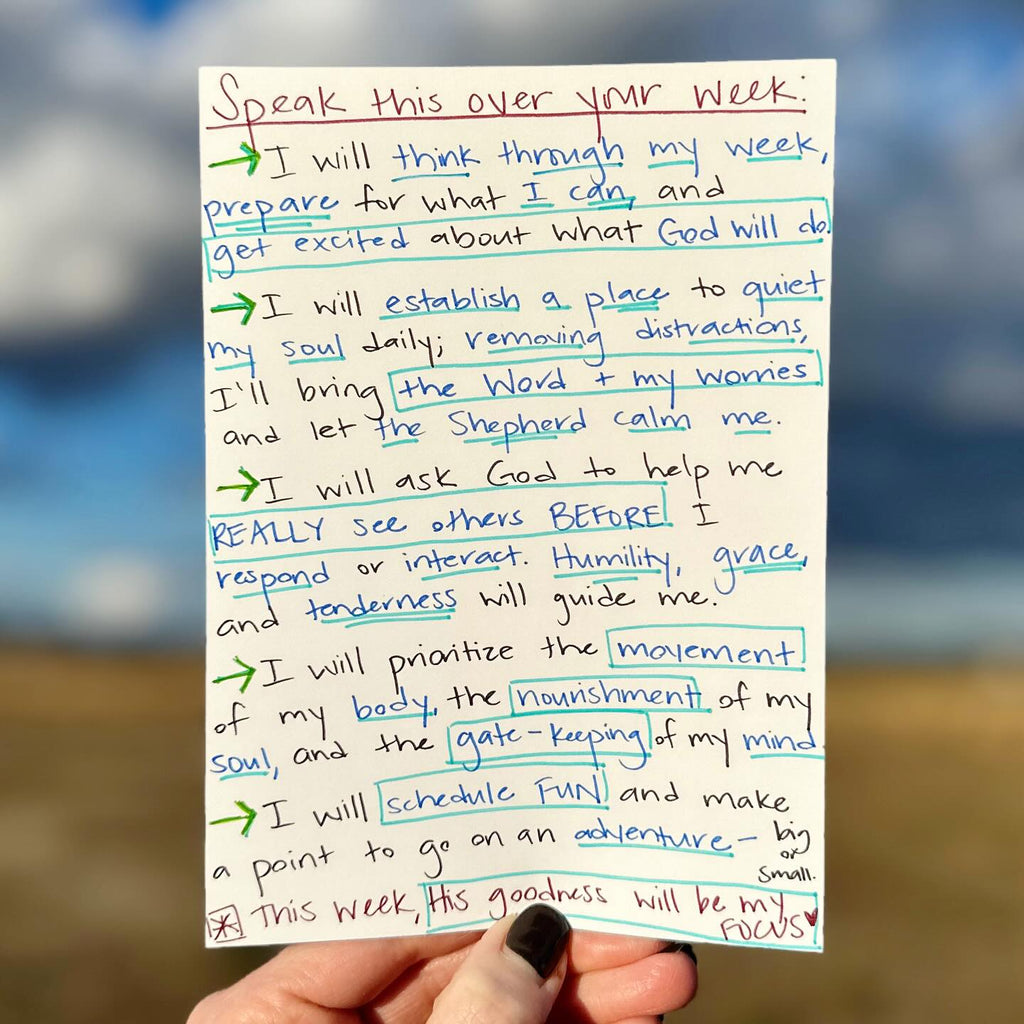 Speak this over your week:
→ I will think through my week,
prepare for what I can, and
get excited about what God will do.
→ I will establish a place to quiet
my soul daily; removing distractions,
I'll bring the Word + my worries
and let the Shepherd calm me.
→ I will ask God to help me
REALLY see others BEFORE I
respond or interact. Humility, grace,
and tenderness will guide me.
→ I will prioritize the movement
of my body, the nourishment of my
soul, and the gate-keeping of my mind.
→ I will schedule FUN and make
a point to go on an adventure - big
or
small.
* This week, His goodness will be my
FOCUS♥